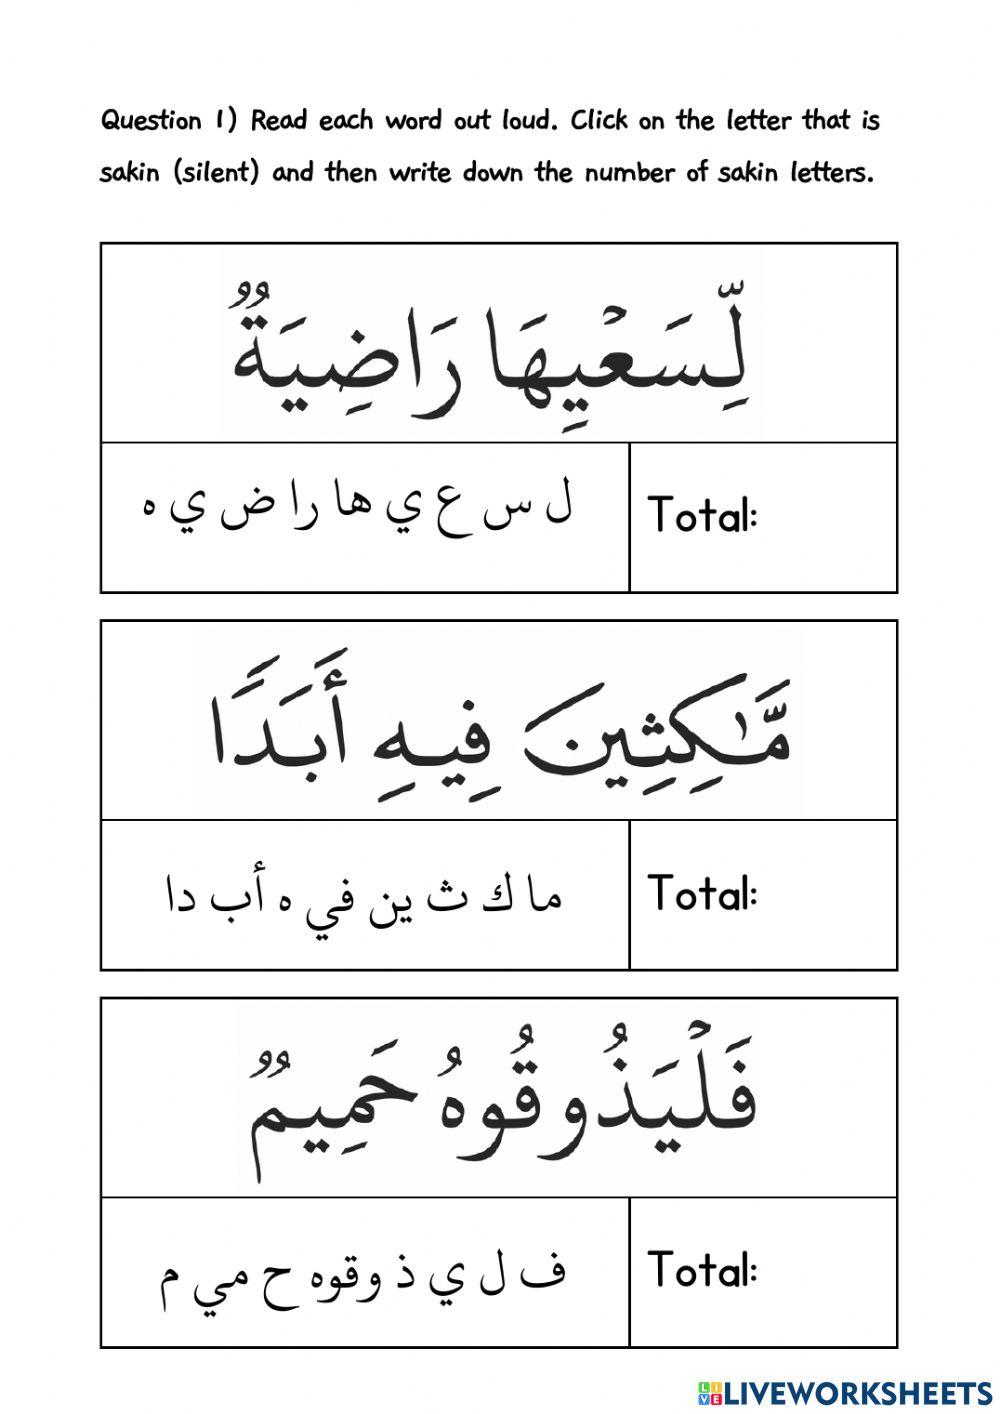 Question 1) Read each word out loud. Click on the letter that is
sakin (silent) and then write down the number of sakin letters.
لِّسَعۡيِهَا رَاضِيَةٞ
ل س ع ي ها را ض ي ه
Total:
مَّٰكِثِينَ فِيهِ أَبَدٗا
ما ك ث ين في ه أب دا
Total:
فَلۡيَذُوقُوهُ حَمِيمٞ
ف ل ي ذ وقوه ح مي م
Total:
LIVEWORKSHEETS